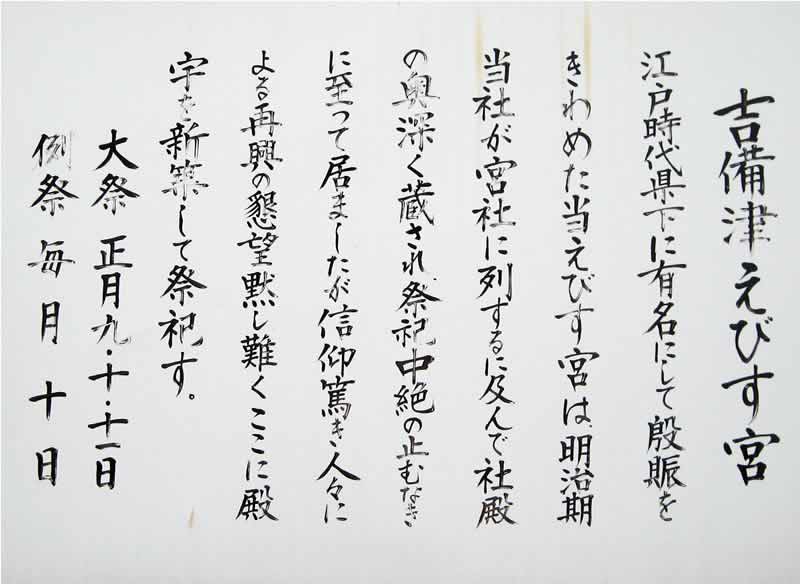 吉備津えびす宮
江戸時代県下に有名にして殷賑を
きわめた当えびす宮は、明治期
当社が宮社に列するに及んで社殿
の奥深く蔵され、祭祀中絶の止むなき
に至って居ましたが信仰篤き人々に
よる再興の懇望黙し難くここに殿
宇を新築して祭祀す。
大祭 正月九・十・十一日
例祭 毎月 十日